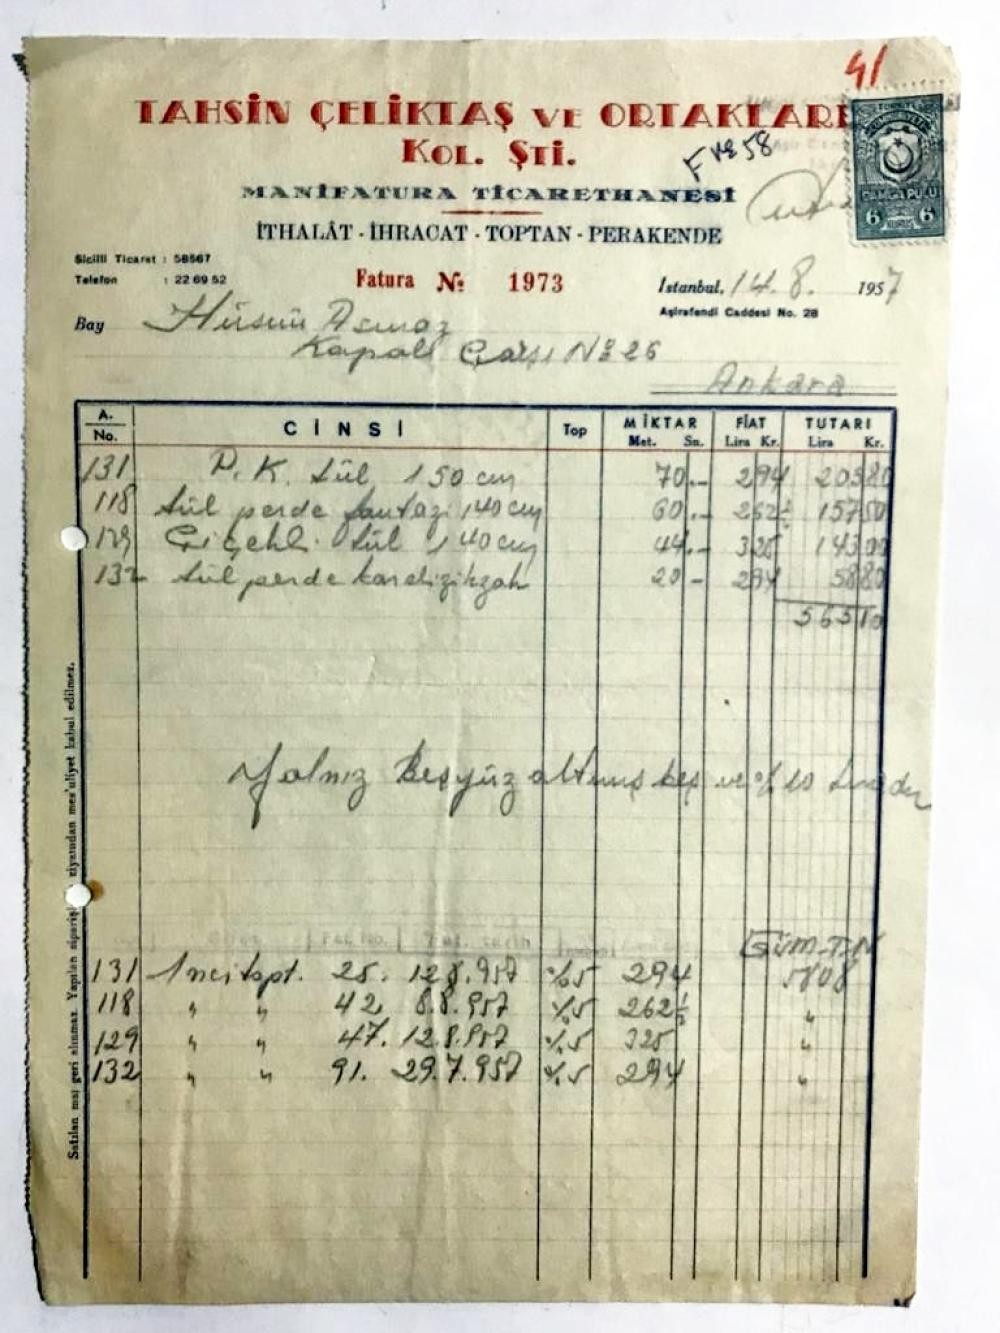 41
TAHSİN ÇELİKTAŞ VE ORTAKLARI
KOL. ŞTİ.
MANİFATURA TİCARETHANESİ
İTHALÂT - İHRACAT - TOPTAN - PERAKENDE
TÜRKİYE CUMHURİYETİ
DAMGA PULU
6 KURUŞ 6
Sicilli Ticaret : 58567
Telefon : 22 69 52
Fatura № 1973
İstanbul, 14.8. 1957
Aşirefendi Caddesi No. 28
Bay Hüsnü Asmaz
Kapalı Çarşı No 26
Ankara
A. No. CİNSİ Top MİKTAR Met. Sn. FİAT Lira Kr. TUTARI Lira Kr.
131 P. K. tül 150 cm 70 .- 2 94 205 80
118 tül perde fantazi 140 cm 60 .- 262 ½ 157 50
129 Çiçekli tül 140 cm 44 .- 3 25 143 00
132 tül perde 20 - 2 94 58 80
565 10
Yalnız Beşyüz altmış beş ve % 10 liradır
GÜM. T.N
131 1nci tspt. 25. 12.8.957 %5 294 5808
118 " " 42 8.8.957 %5 262 ½ "
129 " " 47. 12.8.957 %5 325 "
132 " " 91. 29.7.957 %5 294 "
Satılan mal geri alınmaz. Yapılan sipariş ziyaından mes'uliyet kabul edilmez.